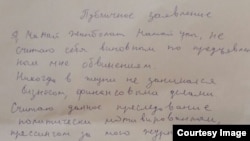 Публичное заявление
Я Камал Жантболат Мамытұлы, не
считаю себя виновным по предъявлен
ным мне обвинением.
Никогда в жизни не занимался
бизнесом, финансовыми делами
Считаю данное преследование
политически мотивированным,
прессингом за мого
Courtesy Image